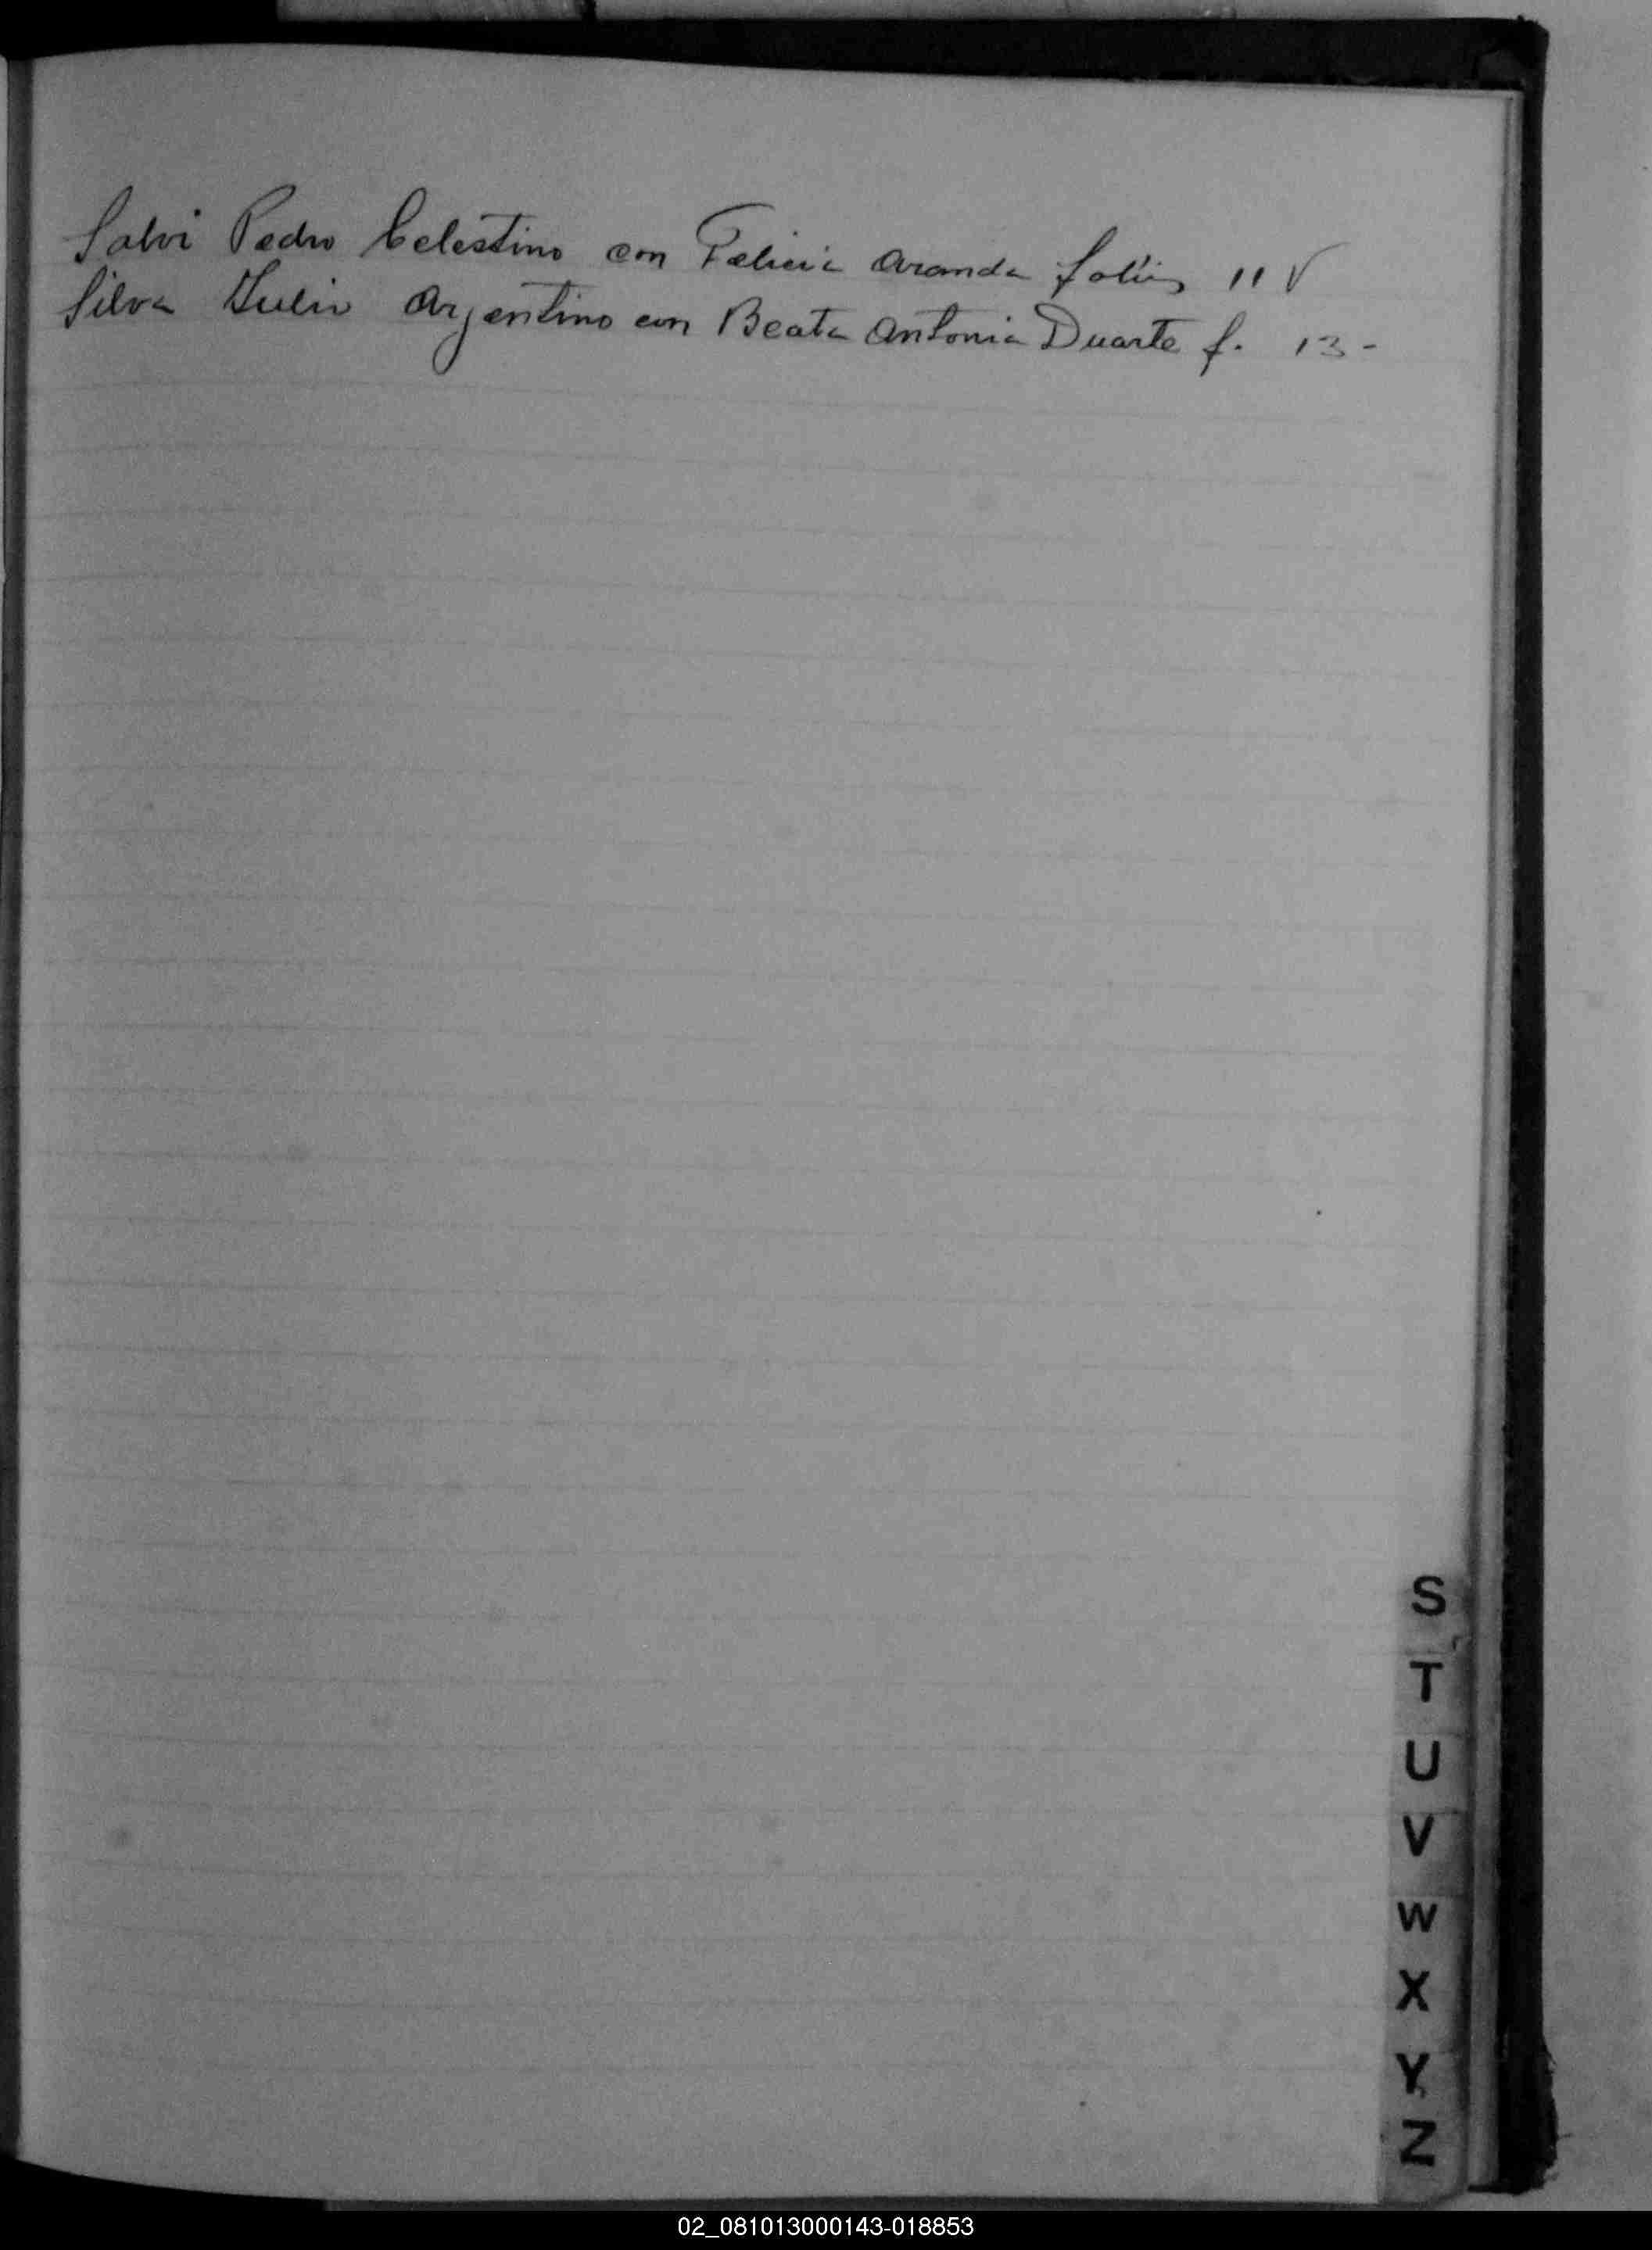 Salvi Pedro Celestino con Felicia Aranda folio 11 V
Silva Julio Argentino con Beata Antonia Duarte f. 13 -
S
T
U
V
W
X
Y
Z
02_081013000143-018853